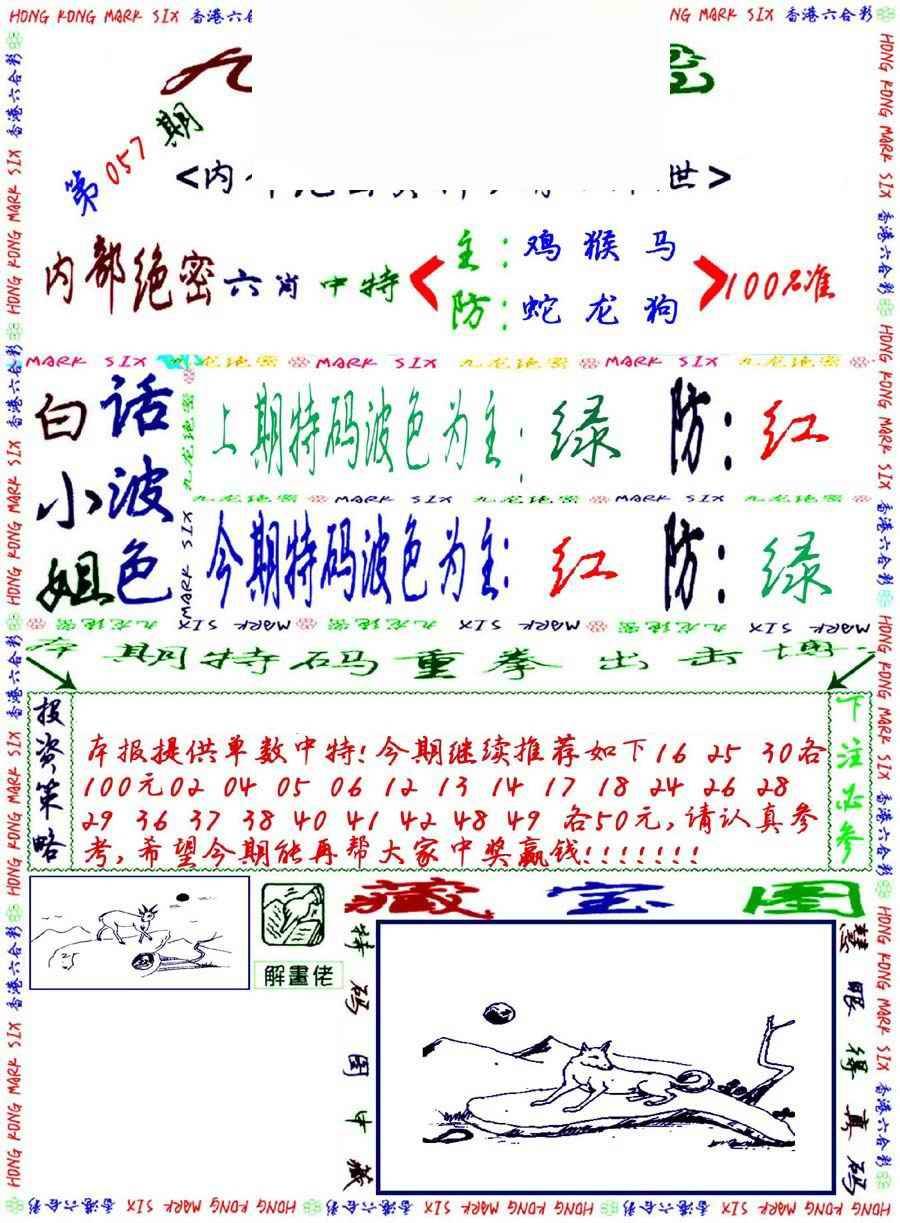 HONG KONG MARK SIX 香港六合彩
第057期
<内
世>
内部绝密六肖中特
主:鸡猴马
防:蛇龙狗
100%准
MARK SIX 九龙绝密 MARK SIX 九龙绝密 MARK SIX 九龙绝密
白话小波姐色
上期特码波色为主:绿 防:红
九龙绝密 MARK SIX 九龙绝密 MARK SIX 九龙绝密
今期特码波色为主:红 防:绿
九龙绝密 MARK SIX 九龙绝密 MARK SIX 九龙绝密 MARK SIX
本期特码重拳出击
投资策略
本报提供单数中特!今期继续推荐如下16 25 30各
100元02 04 05 06 12 13 14 17 18 24 26 28
29 36 37 38 40 41 42 48 49 各50元,请认真参
考,希望今期能再帮大家中奖赢钱!!!!!!!
下注必参
藏宝图
解畫佬
特码图中藏
慧眼得真码
HONG KONG MARK SIX 香港六合彩